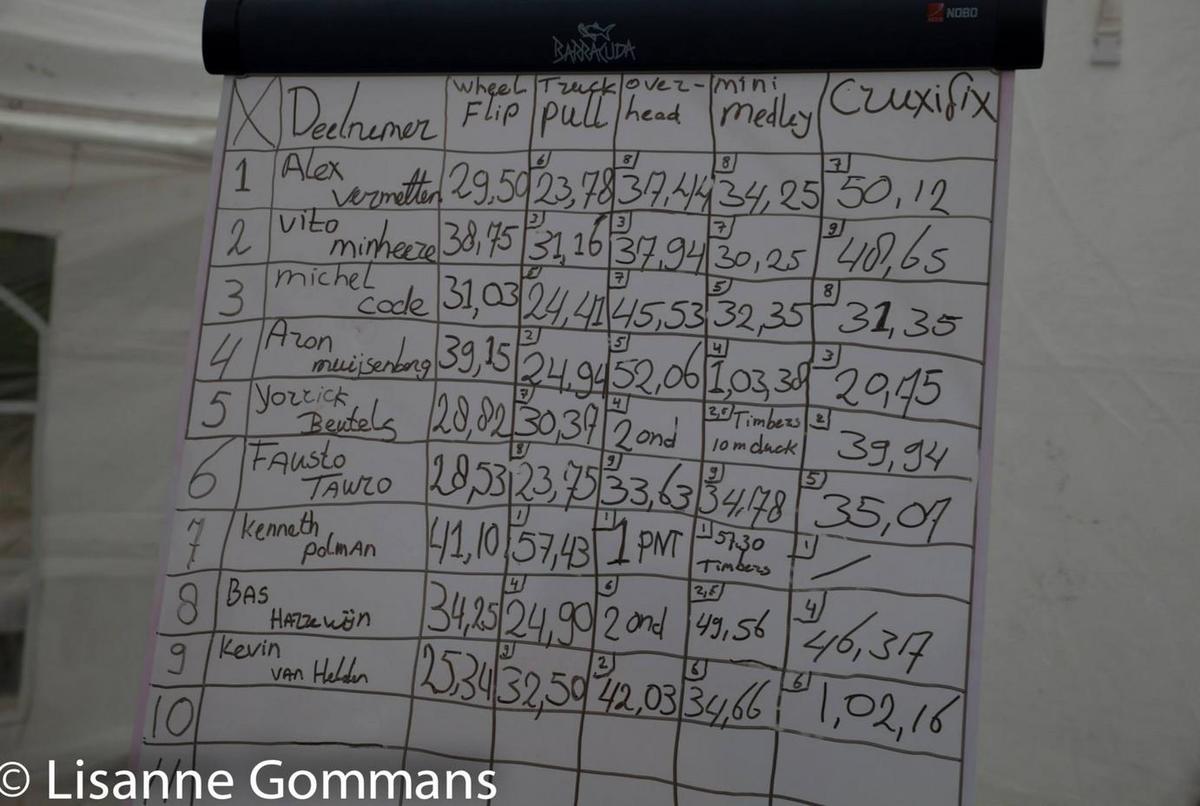 BARRACUDA
NOBO
X Deelnemer Wheel Flip Truck Pull over-head mini medley Cruxifix
1 Alex Vermetten 29,50 6 23,78 8 37,44 8 34,25 7 50,12
2 Vito minheere 38,75 31,16 3 37,94 7 30,25 9 48,65
3 michel Code 31,03 24,41 7 45,53 5 32,35 8 31,35
4 Aron muijsenberg 39,15 2 24,94 5 52,06 4 1,03,38 3 20,75
5 Yorrick Beutels 28,82 7 30,37 4 2 ond 2,5 Timbers 10 m duck 2 39,94
6 FAusto TAURO 28,53 8 23,75 9 33,63 9 34,78 5 35,07
7 Kenneth polmAn 41,10 1 57,43 1 1 PNT 1 57,30 Timbers 1 /
8 BAS 34,25 4 24,90 6 2 ond 2,5 49,56 4 46,37
9 Kevin vAn Helden 25,34 9 32,50 2 42,03 6 34,66 6 1,02,16
10
11
© Lisanne Gommans